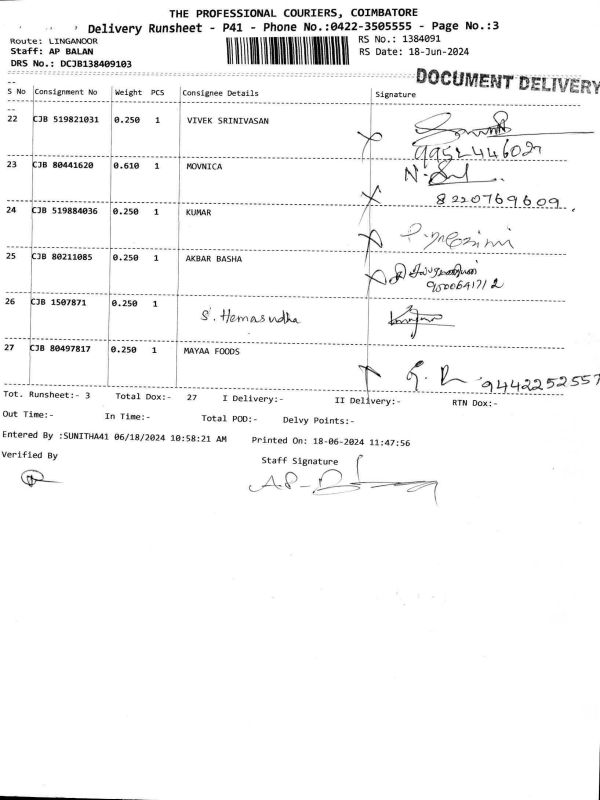 THE PROFESSIONAL COURIERS, COIMBATORE
Delivery Runsheet - P41 - Phone No.:0422-3505555 - Page No.:3
Route: LINGANOOR
RS No.: 1384091
Staff: AP BALAN
RS Date: 18-Jun-2024
DRS No.: DCJB138409103
DOCUMENT DELIVERY
S No Consignment No Weight PCS Consignee Details Signature
22 CJB 519821031 0.250 1 VIVEK SRINIVASAN
23 CJB 80441620 0.610 1 MOVNICA
8220769609
24 CJB 519884036 0.250 1 KUMAR
25 CJB 80211085 0.250 1 AKBAR BASHA
26 CJB 1507871 0.250 1
S. Hemasudha
27 CJB 80497817 0.250 1 MAYAA FOODS
9442252557
Tot. Runsheet:- 3 Total Dox:- 27 I Delivery:- II Delivery:- RTN Dox:-
Out Time:- In Time:- Total POD:- Delvy Points:-
Entered By :SUNITHA41 06/18/2024 10:58:21 AM Printed On: 18-06-2024 11:47:56
Verified By
Staff Signature